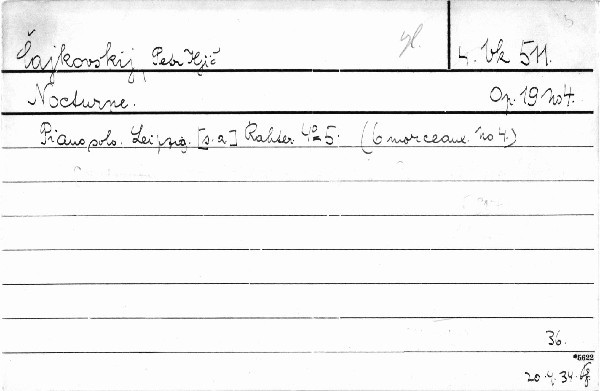 Čajkovskij, Petr Iljič
4. Vk 511.
Nocturne. Op. 19 No 4.
Piano solo. Leipzig. [s.a.] Rahter. 4º 5. (6 morceaux. No 4.)
36.
*5622
20.4.34.